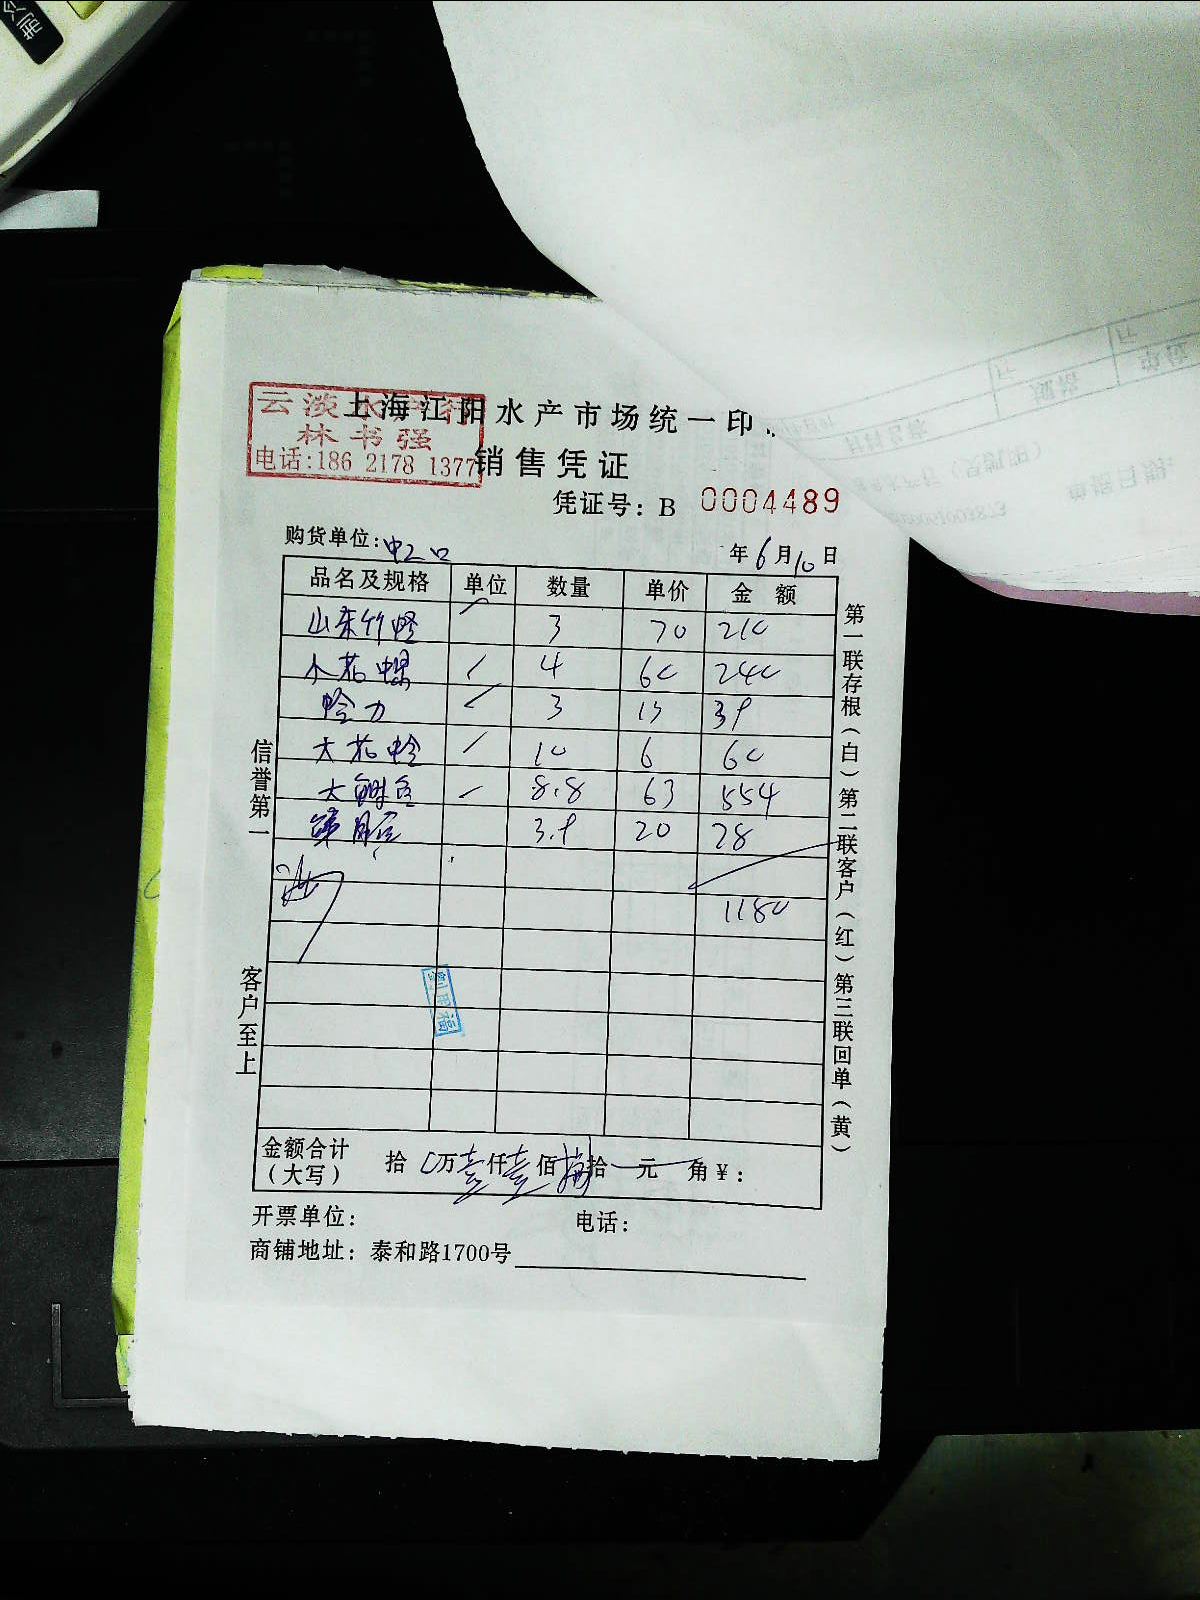 制冷
云淡水产行
林书强
电话:186 2178 1377
上海江阳水产市场统一印
销售凭证
凭证号: B 0004489
购货单位:虹口 年6月10日
品名及规格 单位 数量 单价 金额
山东竹蛏 3 70 210
小花螺 4 60 240
蛤力 3 13 39
大花蛤 10 6 60
大鲥鱼 8.8 63 554
3.9 20 78
1180
金额合计
(大写) 拾 万壹仟壹佰捌拾 元 角 ¥:
开票单位: 电话:
商铺地址: 泰和路1700号
信誉第一 客户至上
第一联存根(白)第二联客户(红)第三联回单(黄)